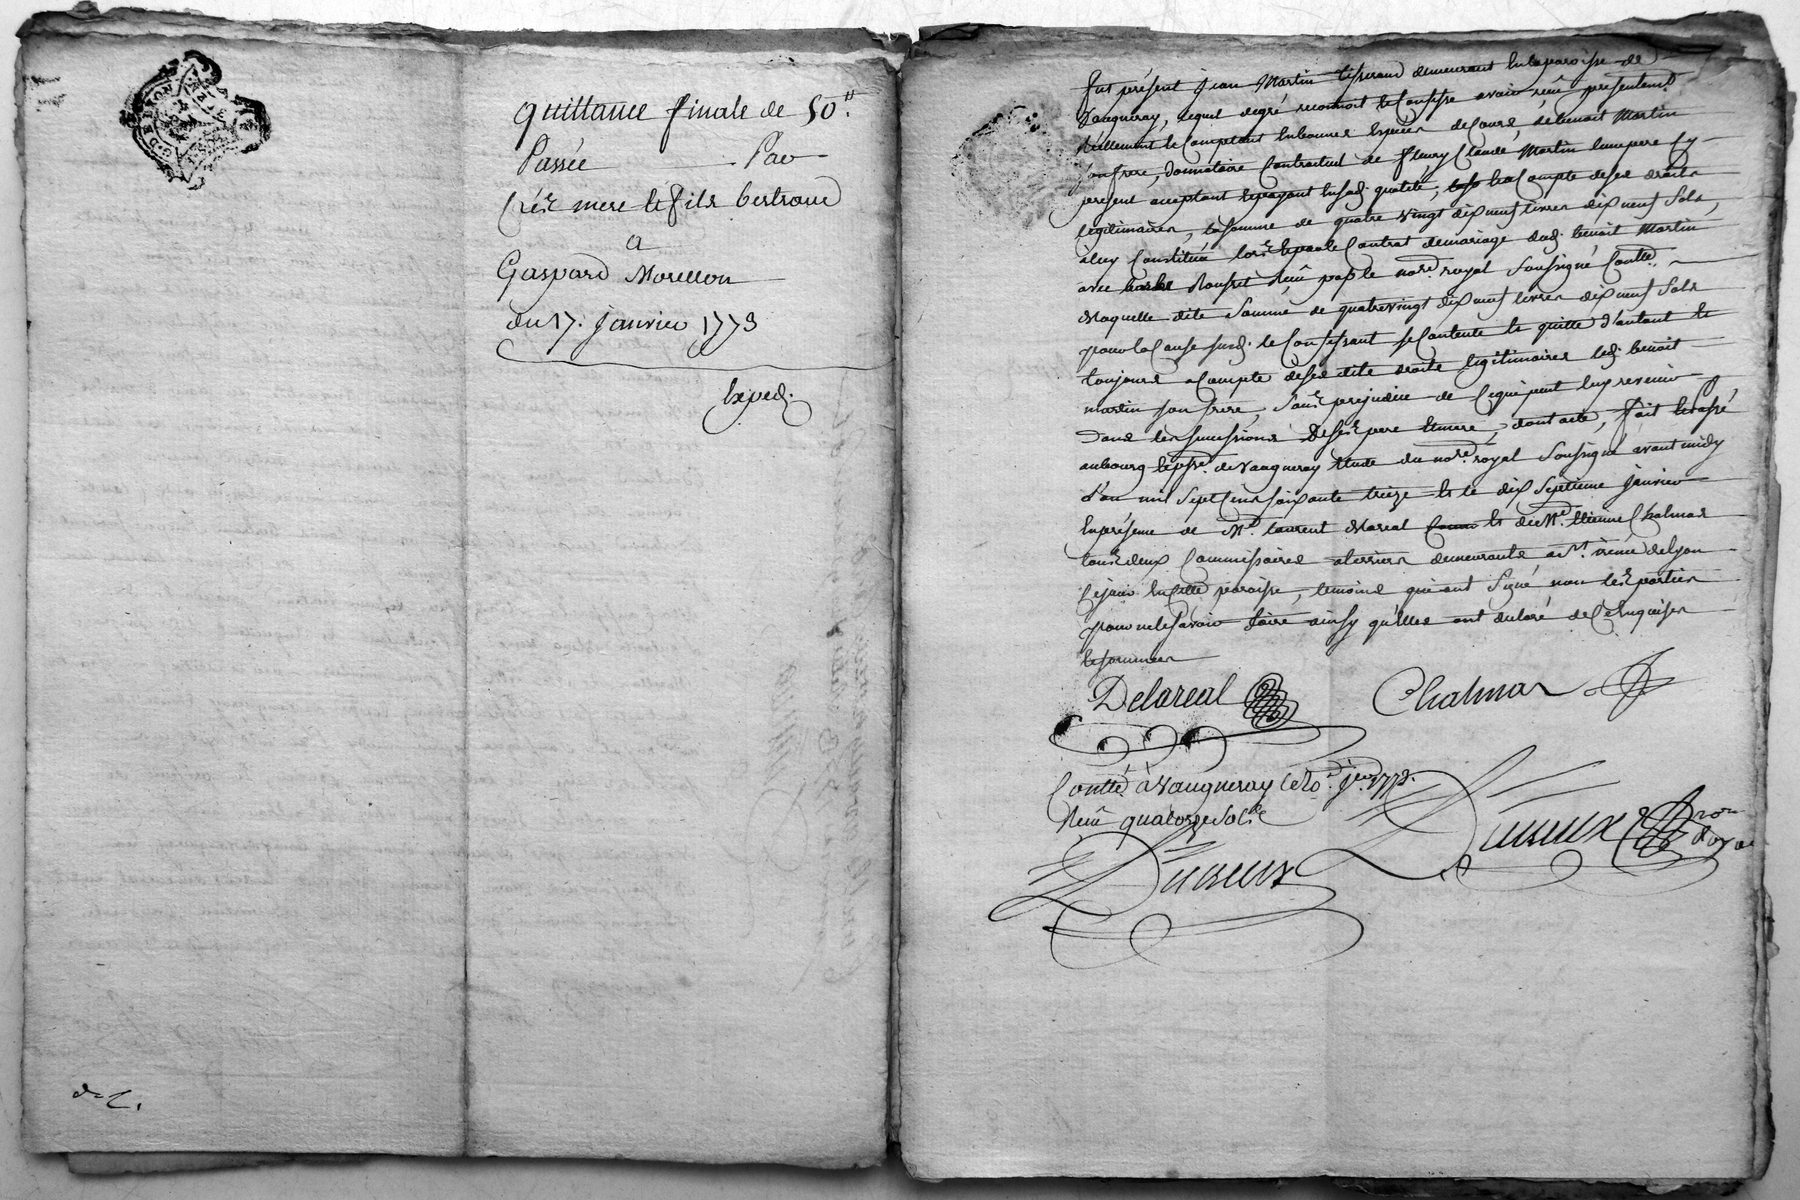 G. DE LYON
quittance finale de 50.ᵗᵗ
Passée Par
les mere et fils bertrand
a
Gaspard Morellon
du 17. janvier 1773
Exped.
fut présent jean Martin tisserand demeurant en la paroisse de
Vaugneray, lequel degré reconnoit et confesse avoir reçu présentemt.
réellement et comptant en bonnes espèces de cours, de benoit Martin
son frere, donnataire contractuel de fleury Claude Martin leur pere icy
present acceptant et payant en sad. qualité, et a compte de ses droits
legitimaires, la somme de quatre vingt dix neuf livres dix neuf sols,
a luy constituée lors et par le contrat de mariage dud. benoit Martin
avec Rousset reçu par le nore. royal soussigné contlé.
de laquelle dite somme de quatre vingt dix neuf livres dix neuf sols
pour la cause susd. le confessant se contente et quitte d'autant et
toujours a compte de ses dits droits legitimaires led. benoit
martin son frere, sans prejudice de ce qui peut luy revenir
dans les successions de ses pere et mere, dont acte, fait et passé
au bourg et psse. de Vaugneray etude du nore. royal soussigné avant midy
l'an mil sept cent soixante treize et le dix septieme janvier
en présence de Me. laurent delareal et de Me. etienne Chalmas
tous deux commissaires a terriers demeurants a St. irénée de lyon
en cette paroisse, temoins qui ont signé non les parties
pour ne le savoir faire ainsy qu'elles ont declaré de ce enquises
et sommées
Delareal Chalmas
Contlé. à Vaugneray le 20. jer. 1773.
Reçu quatorze sols
d-L.